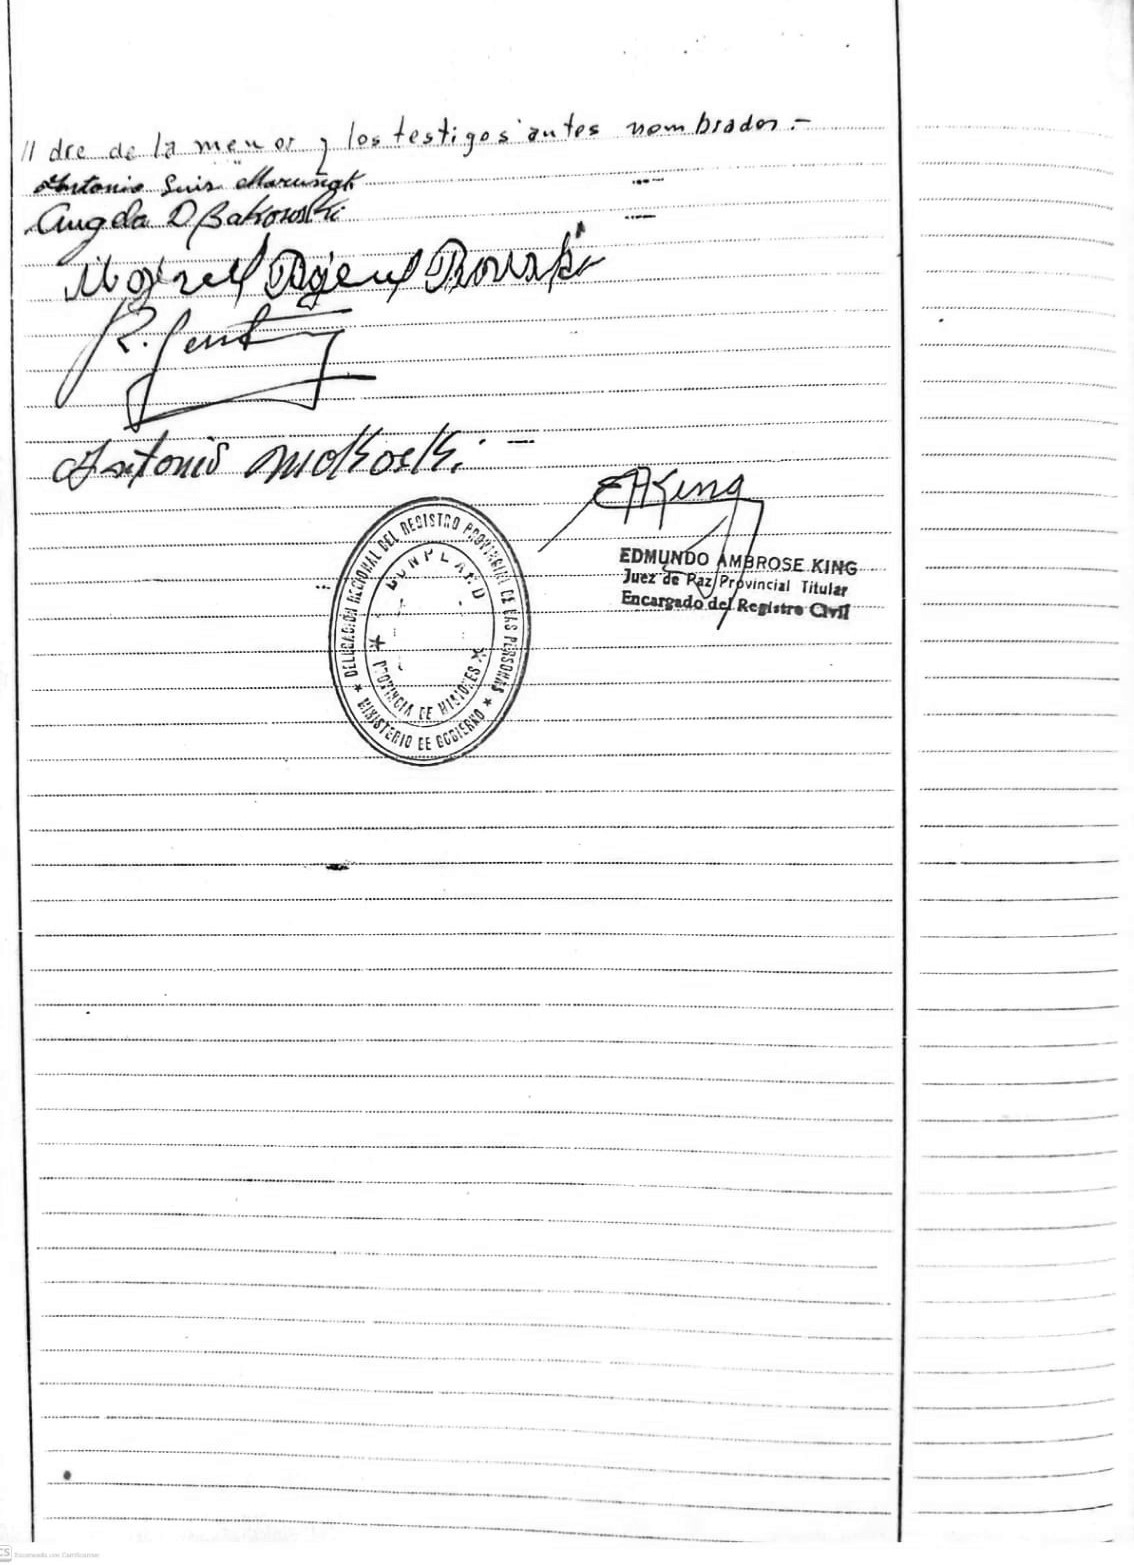 // dre de la menor y los testigos antes nombrados.-
Antonio Luis
Angela D Bakowski
R.
Antonio Mokoski.-
EAKing
DELEGACIÓN REGIONAL DEL REGISTRO PROVINCIAL DE LAS PERSONAS
BONPLAND
PROVINCIA DE MISIONES
MINISTERIO DE GOBIERNO
EDMUNDO AMBROSE KING
Juez de Paz Provincial Titular
Encargado del Registro Civil
CS Escaneado con CamScanner